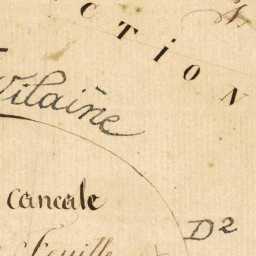 CTION
Vilaine
cancale
D2
feuille